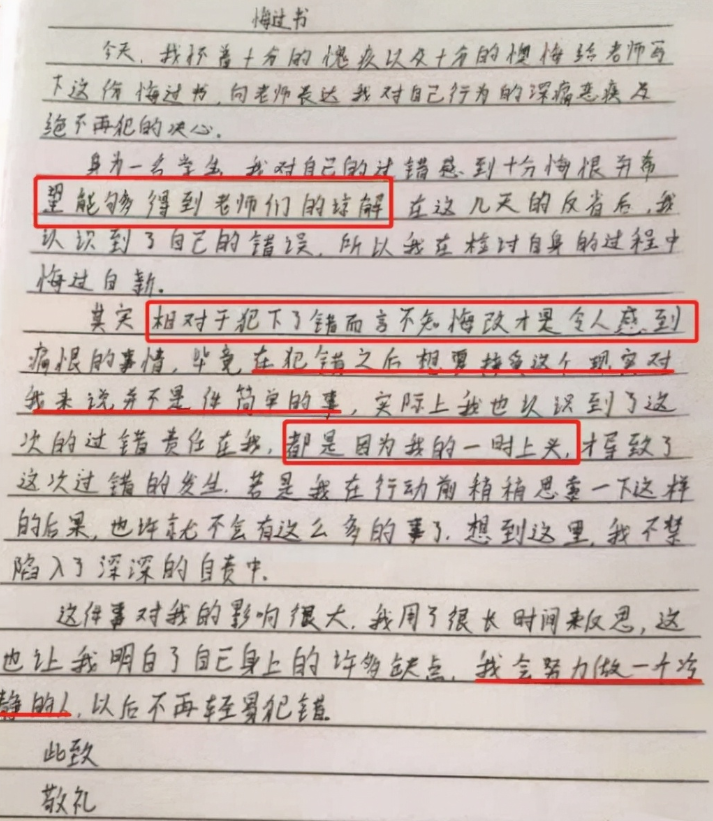 悔过书
今天，我怀着十分的愧疚以及十分的懊悔给老师写
下这份悔过书，向老师表达我对自己行为的深痛恶疾及
绝不再犯的决心。
身为一名学生，我对自己的过错感到十分悔恨并希
望能够得到老师们的谅解，在这几天的反省后，我
认识到了自己的错误，所以我在检讨自身的过程中
悔过自新。
其实相对于犯下了错而言不知悔改才是令人感到
痛恨的事情，毕竟，在犯错之后想要接受这个现实对
我来说并不是件简单的事，实际上我也认识到了这
次的过错责任在我，都是因为我的一时上头，才导致了
这次过错的发生．若是我在行动前稍稍思索一下这样
的后果，也许就不会有这么多的事了．想到这里，我不禁
陷入了深深的自责中．
这件事对我的影响很大．我用了很长时间来反思，这
也让我明白了自己身上的许多缺点，我会努力做一个冷
静的人，以后不再轻易犯错．
此致
敬礼